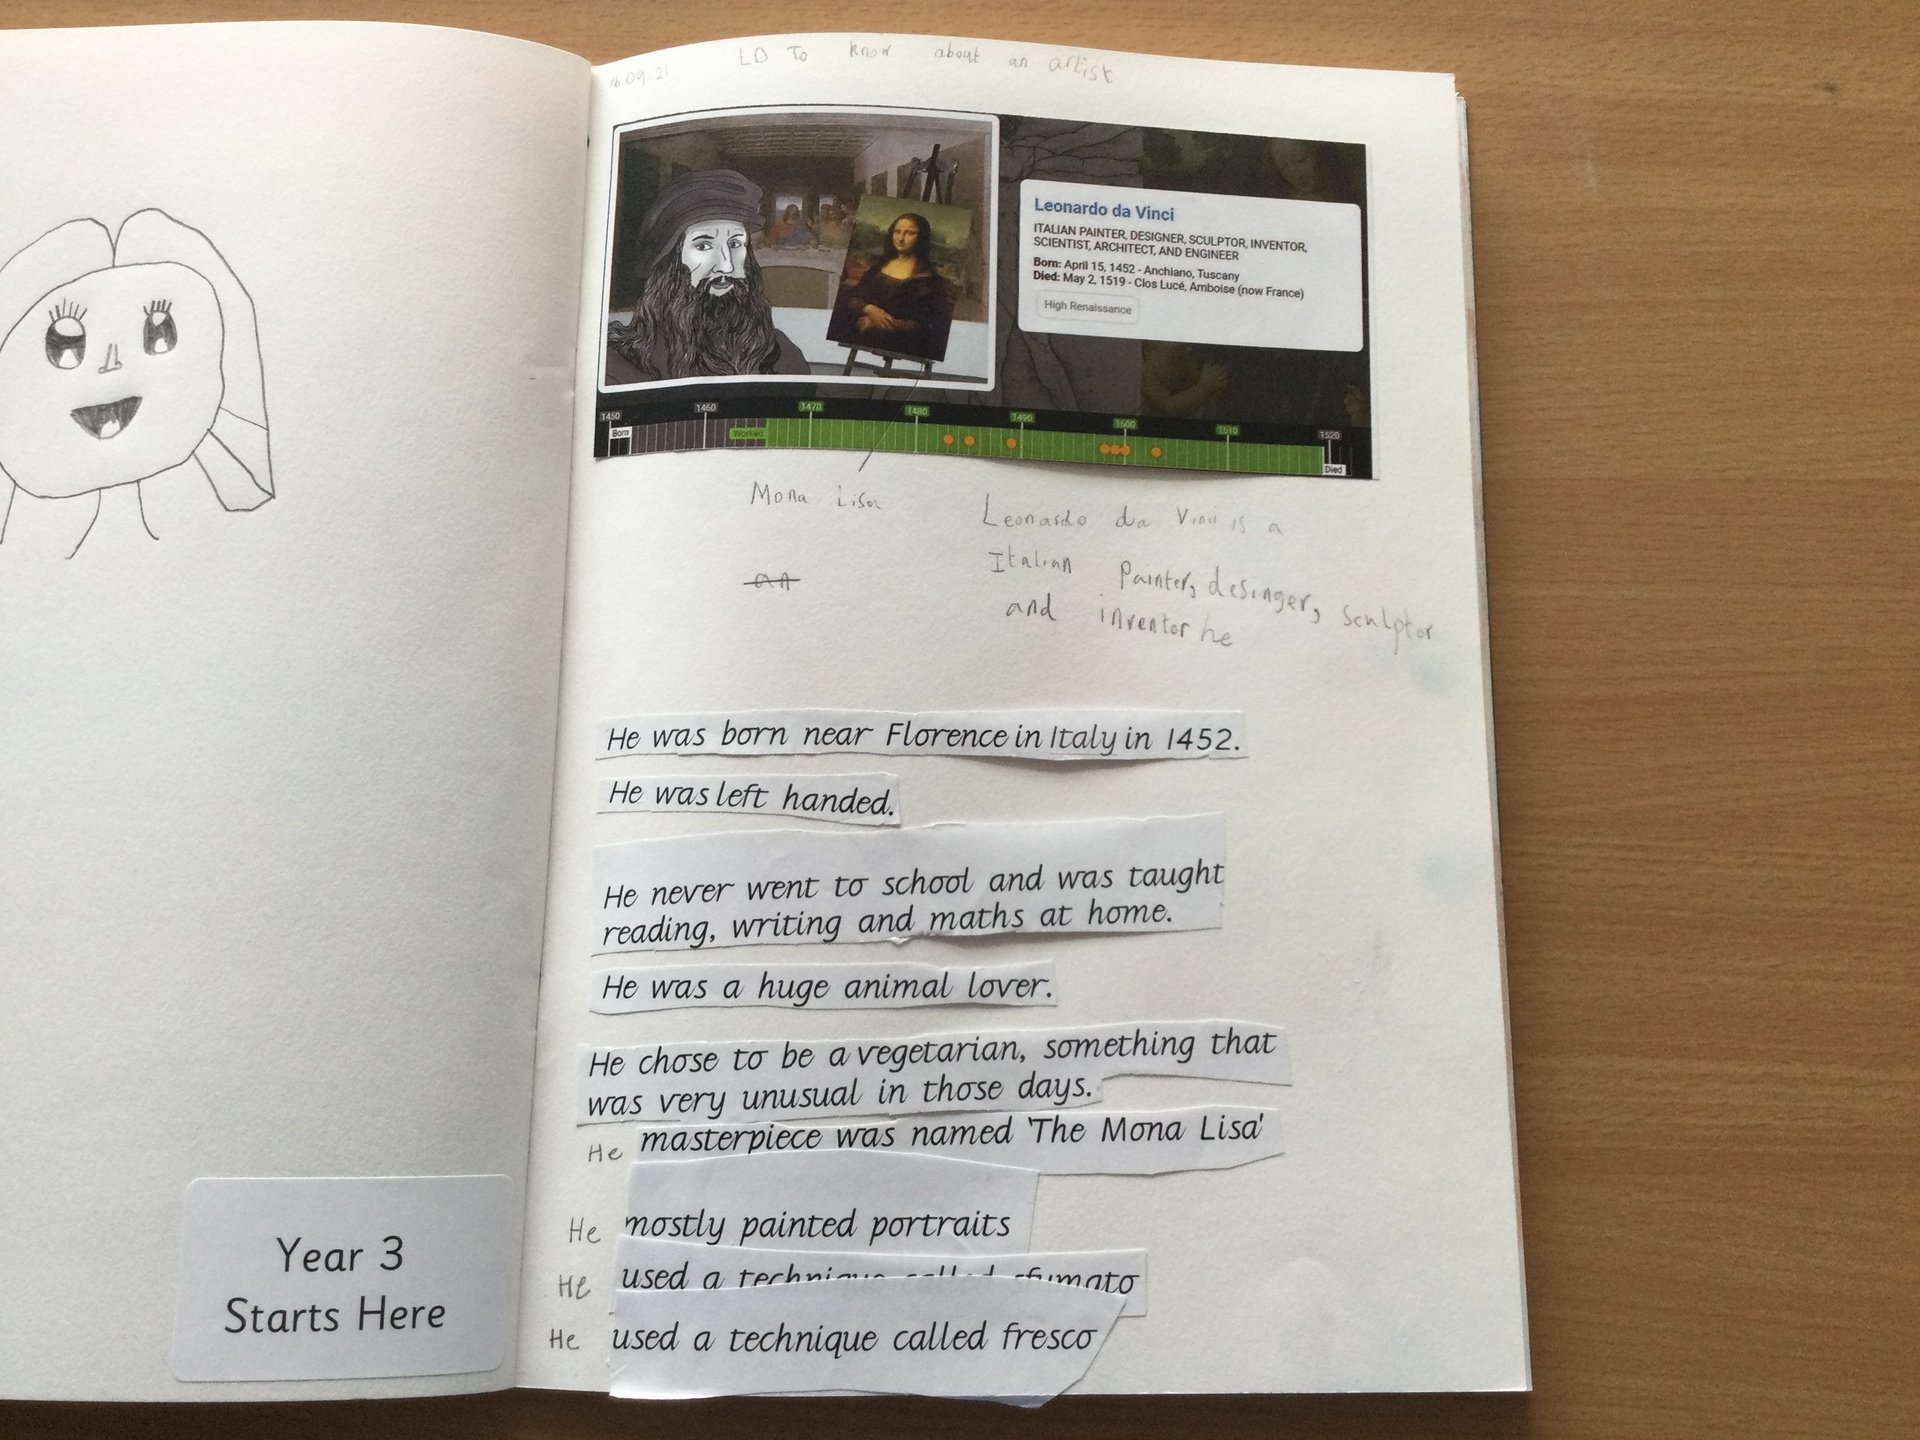 Year 3
Starts Here
16.09.21
LO To know about an artist
Leonardo da Vinci
ITALIAN PAINTER, DESIGNER, SCULPTOR, INVENTOR,
SCIENTIST, ARCHITECT, AND ENGINEER
Born: April 15, 1452 - Anchiano, Tuscany
Died: May 2, 1519 - Clos Lucé, Amboise (now France)
High Renaissance
1450 1460 1470 1480 1490 1500 1510 1520
Born Worked Died
Mona Lisa
an
Leonardo da Vinci is a
Italian Painter, desinger, sculptor
and inventor he
He was born near Florence in Italy in 1452.
He was left handed.
He never went to school and was taught
reading, writing and maths at home.
He was a huge animal lover.
He chose to be a vegetarian, something that
was very unusual in those days.
He masterpiece was named 'The Mona Lisa'
He mostly painted portraits
He used a technique called sfumato
He used a technique called fresco